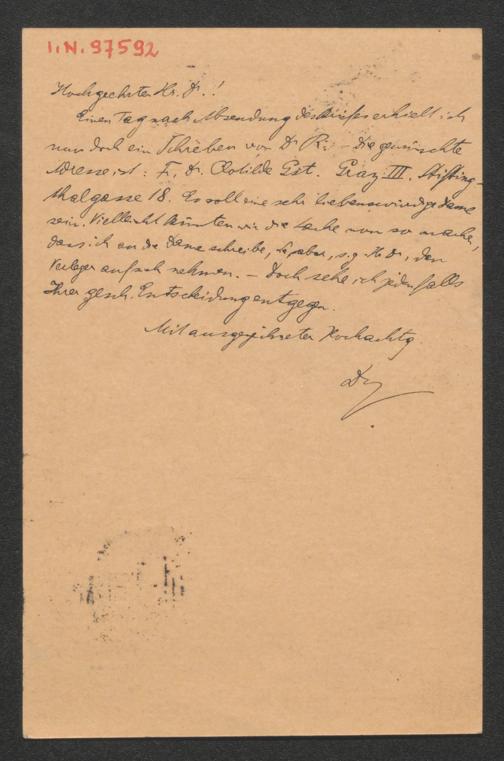 I.N. 97592
Hochgeehrter Hr. Dr.!
Einen Tag nach Absendung des Briefes erhielt ich
nun doch ein Schreiben von Dr Ri. – die gewünschte
Adresse ist: F. Dr. Clotilde Gst. Graz III. Stifting-
thalgasse 18. Es soll eine sehr liebenswürdige Dame
sein. Vielleicht könnten wir die Sache nun so machen,
dass ich an die Dame schreibe, Sie aber, s. g. Hr Dr, den
Verleger auf sich nehmen. – Doch sehe ich jedenfalls
Ihrer gesch. Entscheidung entgegen.
Mit ausgezeichneter Hochachtg